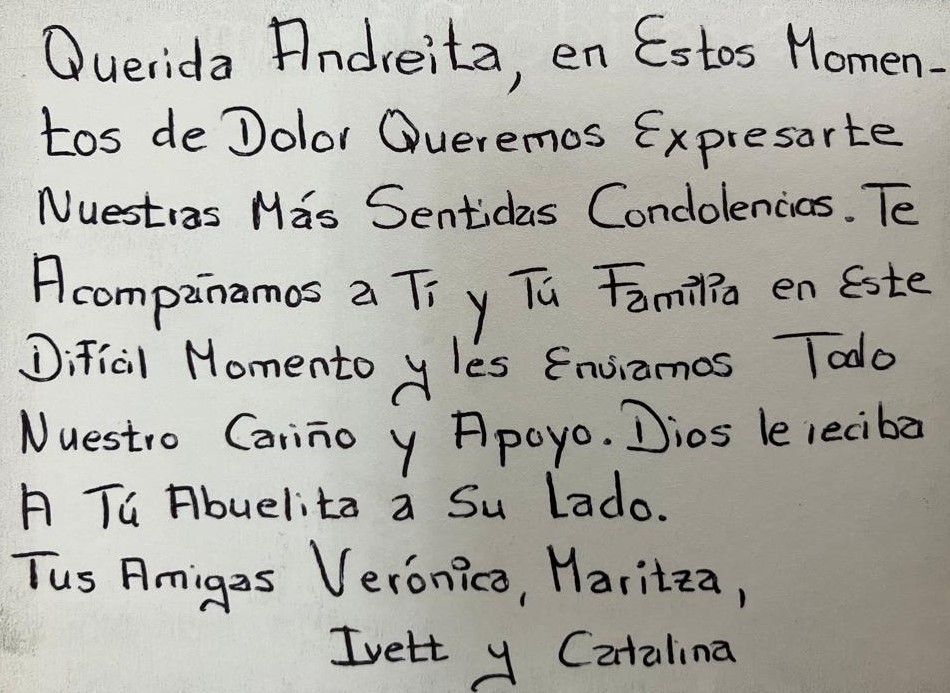 Querida Andreita, en Estos Momen-
tos de Dolor Queremos Expresarte
Nuestras Más Sentidas Condolencias. Te
Acompañamos a Tí y Tú Familia en Este
Difícil Momento y les Enviamos Todo
Nuestro Cariño y Apoyo. Dios le reciba
A Tú Abuelita a Su Lado.
Tus Amigas Verónica, Maritza,
Ivett y Catalina